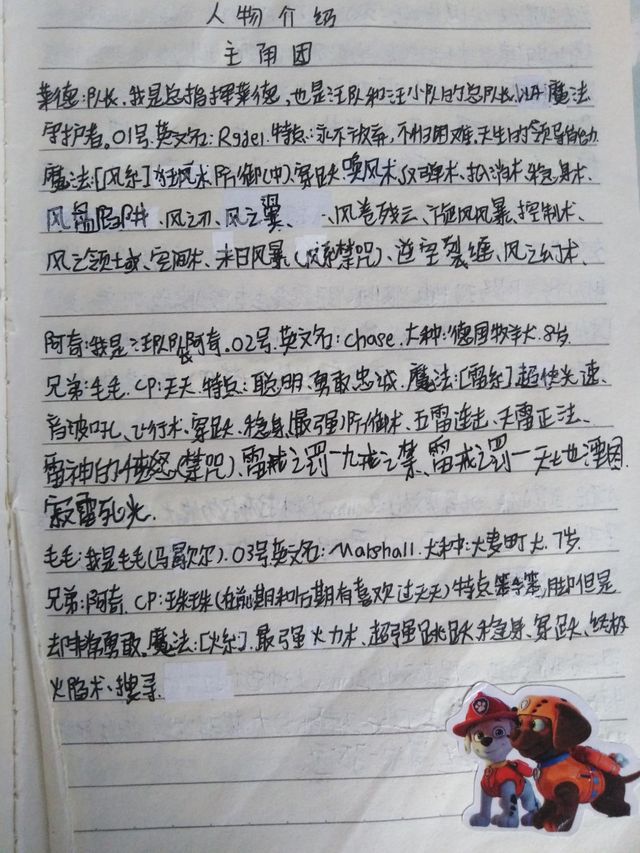 人物介绍
主角团
莱德:队长,我是总指挥莱德,也是汪队和汪小队的总队长,以及魔法
守护者。01号.英文名:Rgdei.特点:永不放弃,不怕困难.天生的领导能力
魔法:[风系]狂风术防御(中).穿跃.唤风术.反弹术、抵消术.稳身术、
风盘陷阱、风之刃、风之翼、风卷残云、旋风风暴.控制术、
风之领域、空间术、末日风暴(风系禁咒)、造空裂缝、风之幻术、
阿奇:我是汪队队长阿奇.02号.英文名:chase.犬种:德国牧羊犬.8岁
兄弟:毛毛.CP:天天.特点:聪明.勇敢忠诚.魔法:[雷系].超快失速、
音波吼、飞行术、穿跃、稳身(最强)防御术、五雷连击、天雷正法、
雷神的愤怒(禁咒)、雷戒之罚一九戒之禁、雷戒之罚一天地湮灭
寂雷死光.
毛毛:我是毛毛(马歇尔).03号英文名:Marshall.犬种:大麦町犬.7岁.
兄弟:阿奇.CP:珠珠(在前期和后期有喜欢过天天)特点笨手笨脚但是
却非常勇敢。魔法:[火系].最强火力术、超强跳跃.稳身、穿跃、终极
火焰术、搜寻.